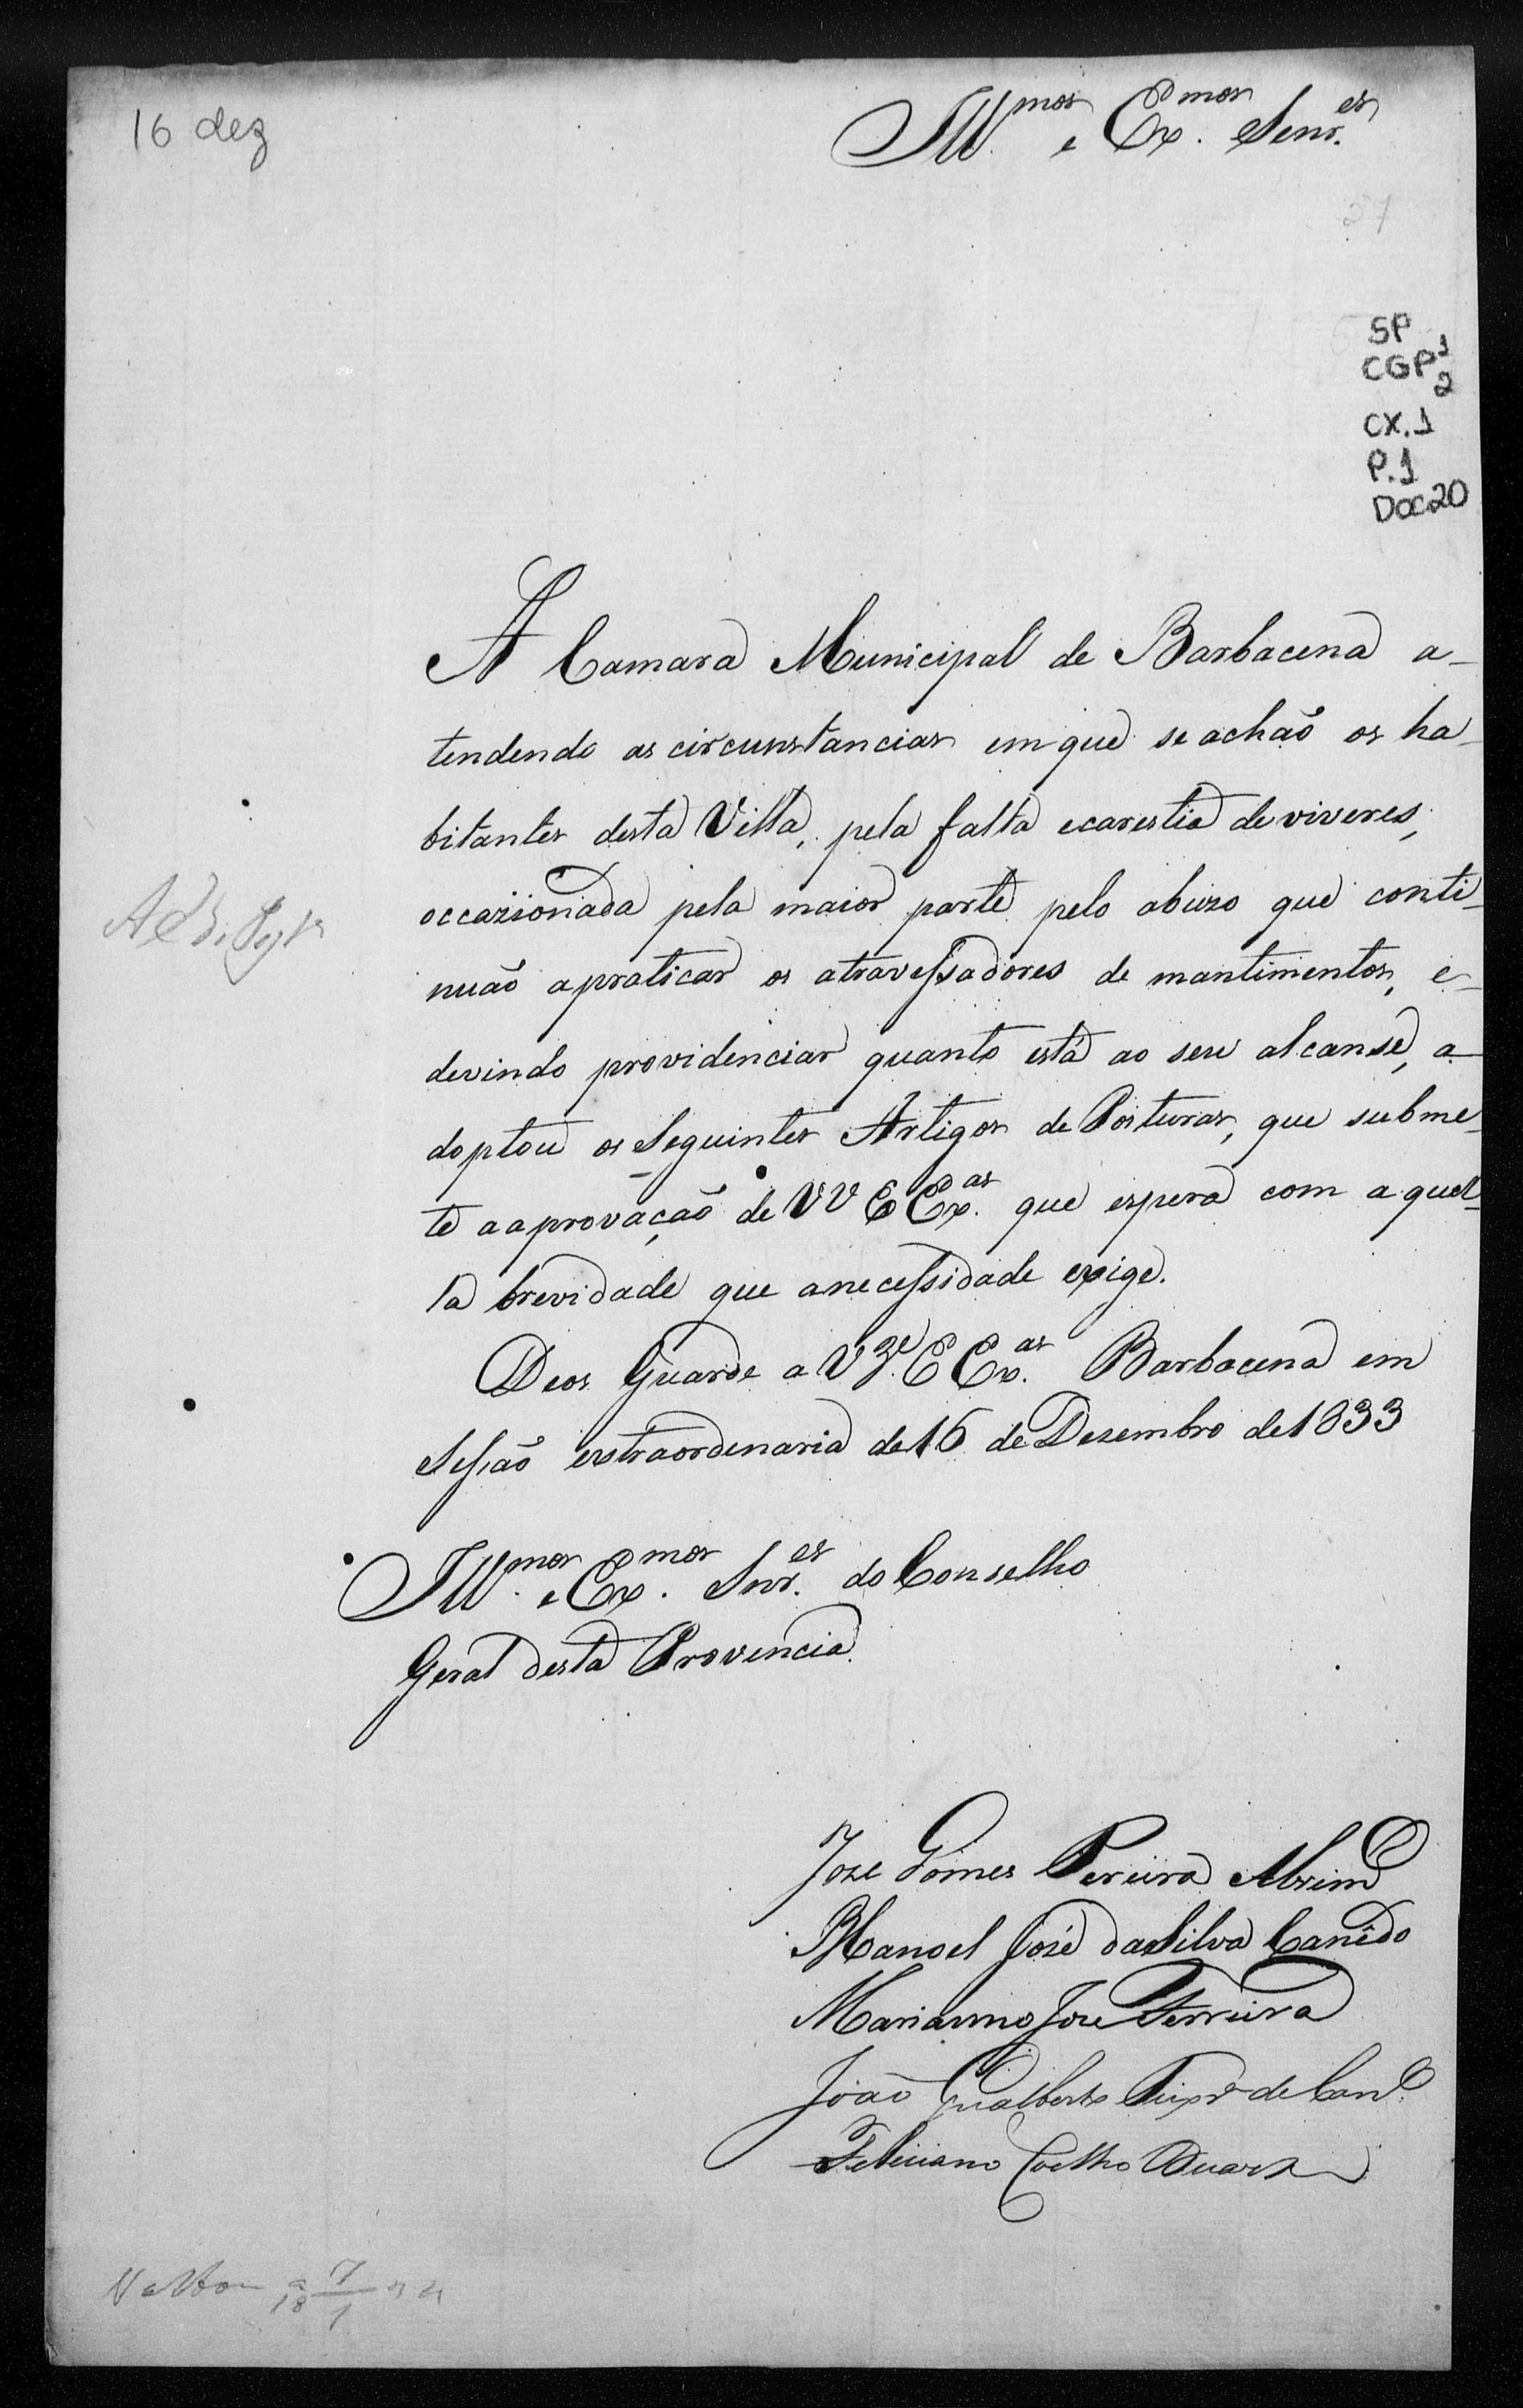 16 dez
Ill.mos e Ex.mos Senr.es
37
SP
CGP 1 2
CX.1
P.1
Doc20
A Camara Municipal de Barbacena a-
tendendo as circunstancias em que se achaõ os ha-
bitantes desta Villa, pela falta e carestia de viveres,
occazionada pela maior parte pelo abuzo que conti-
nuaõ a praticar os atravessadores de mantimentos, e-
devindo providenciar quanto está ao seu alcanse, a-
doptou os Seguintes Artigos de Posturas, que subme-
te a aprovaçaõ de VV EEx.as que espera com aquel-
la brevidade que a necessidade exige.
Deos Guarde a VV. EEx.as Barbacena em
Sessaõ extraordenaria de 16 de Desembro de 1833
Ill.mos e Ex.mos Snr.es do Conselho
Geral desta Provencia.
Joze Gomes Pereira
Manoel José da Silva Canêdo
Marianno Joze Ferreira
Joaõ Gualberto Teixr.a de Carv.o
Feliciano Coelho Duarte